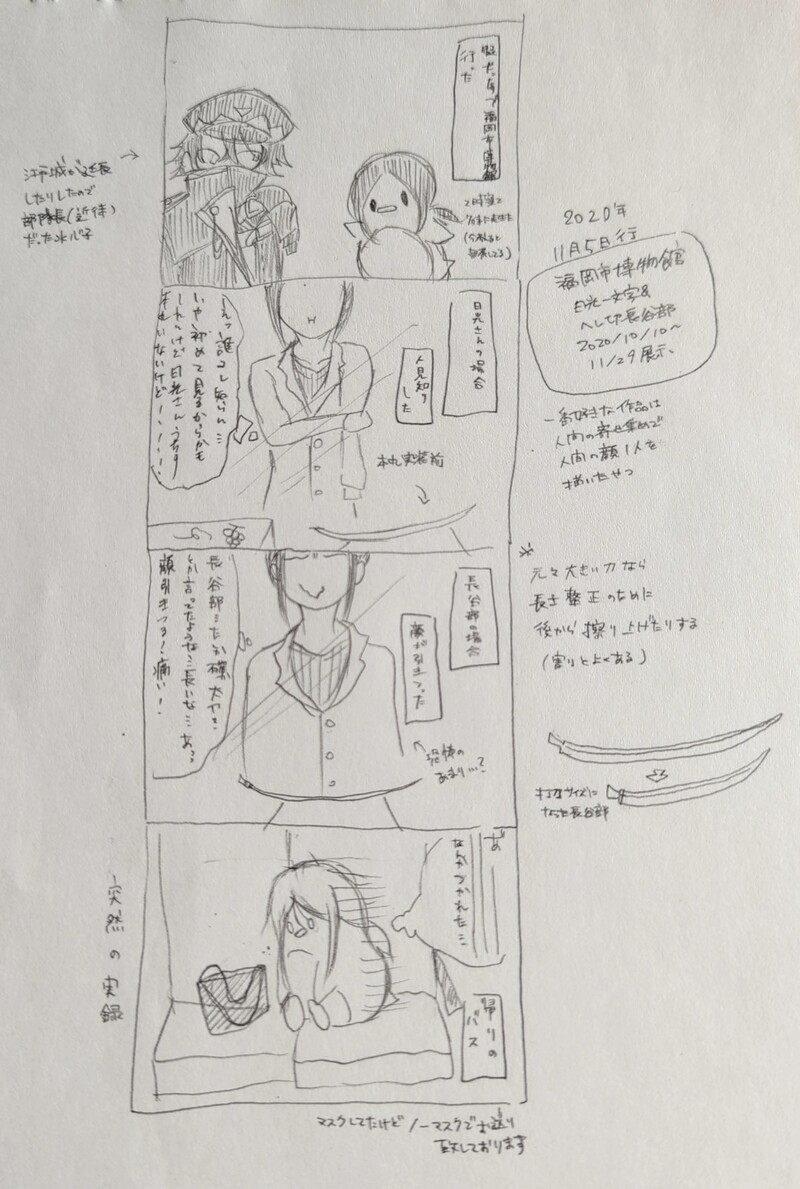 福岡市博物館
行った
江戸城が延長
したりしたので
部隊長(近侍)
だった水心子
2020年
11月5日行
福岡市博物館
日光一文字&
へし切長谷部
2020/10/10~
11/29展示、
一番好きな作品は
人間の寄せ集めで
人間の顔1人を
描いたやつ
日光さんの場合
人見知り
した
えっ誰コレ知らん…
いや初めて見るからかも
しれんけど日光さんうち
きていないけど!!!!
本丸実装前
長谷部の場合
顔が引きつった
長谷部…たしか磨上やら
とか言ってたような…長いな…あっ
頬引きつる!痛い!
恐怖の
あまり…?
※
元々大きい刀なら
長さ整正のために
後から擦り上げたりする
(割りとよくある)
打刀サイズに
なった長谷部
あ
なんかつかれた…
帰りの
バス
突然の実録
マスクしてたけどノーマスクでお送り
致しております